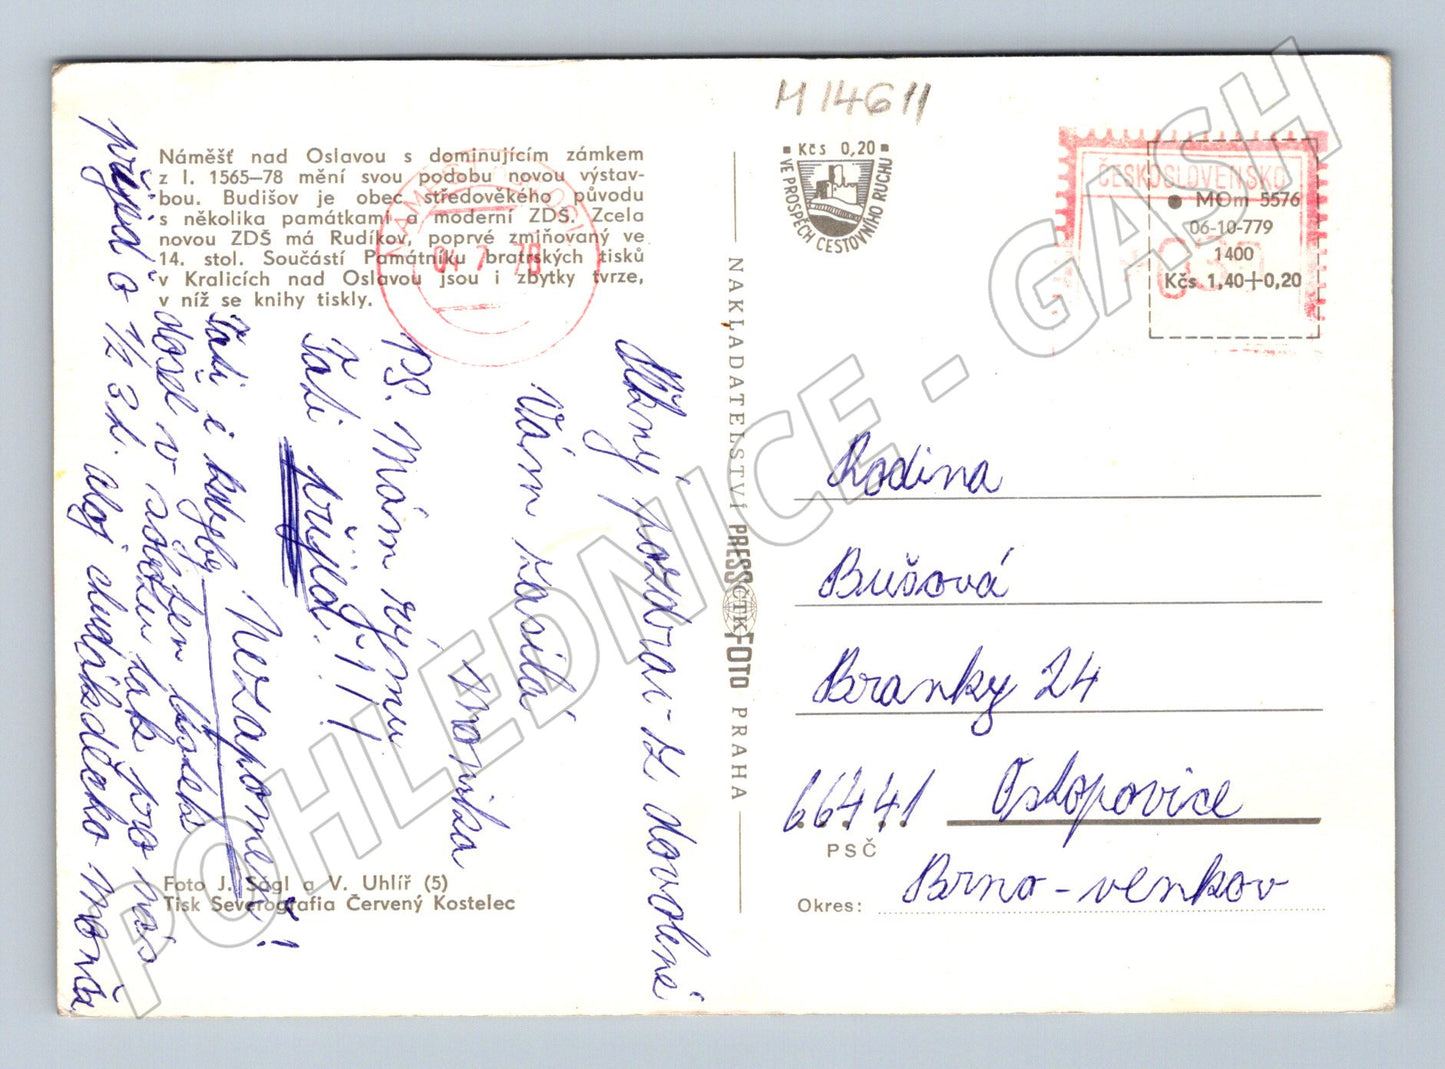 M 14611
Náměšť nad Oslavou s dominujícím zámkem
z l. 1565–78 mění svou podobu novou výstav-
bou. Budišov je obec středověkého původu
s několika památkami a moderní ZDŠ. Zcela
novou ZDŠ má Rudíkov, poprvé zmiňovaný ve
14. stol. Součástí Památníku bratrských tisků
v Kralicích nad Oslavou jsou i zbytky tvrze,
v níž se knihy tiskly.
Kčs 0,20
VE PROSPĚCH CESTOVNÍHO RUCHU
ČESKOSLOVENSKO
MOm 5576
06-10-779
1400
Kčs 1,40+0,20
04 7 78
NAKLADATELSTVÍ PRESSFOTO PRAHA
ČTK
Něžný pozdrav z dovolené
Vám zasílá
Monika
PS. Mám rýmu
Taťi přijeď!!!
Taťi i kdyby
Nezapomeň!
došel v
sobotu tak pro nás
přijeď o 1/2 3 d.
Rodina
Bušová
Branky 24
66441 Ostopovice
PSČ
Okres: Brno-venkov
Foto J. Ságl a V. Uhlíř (5)
Tisk Severografia Červený Kostelec
POHLEDNICE - GASH